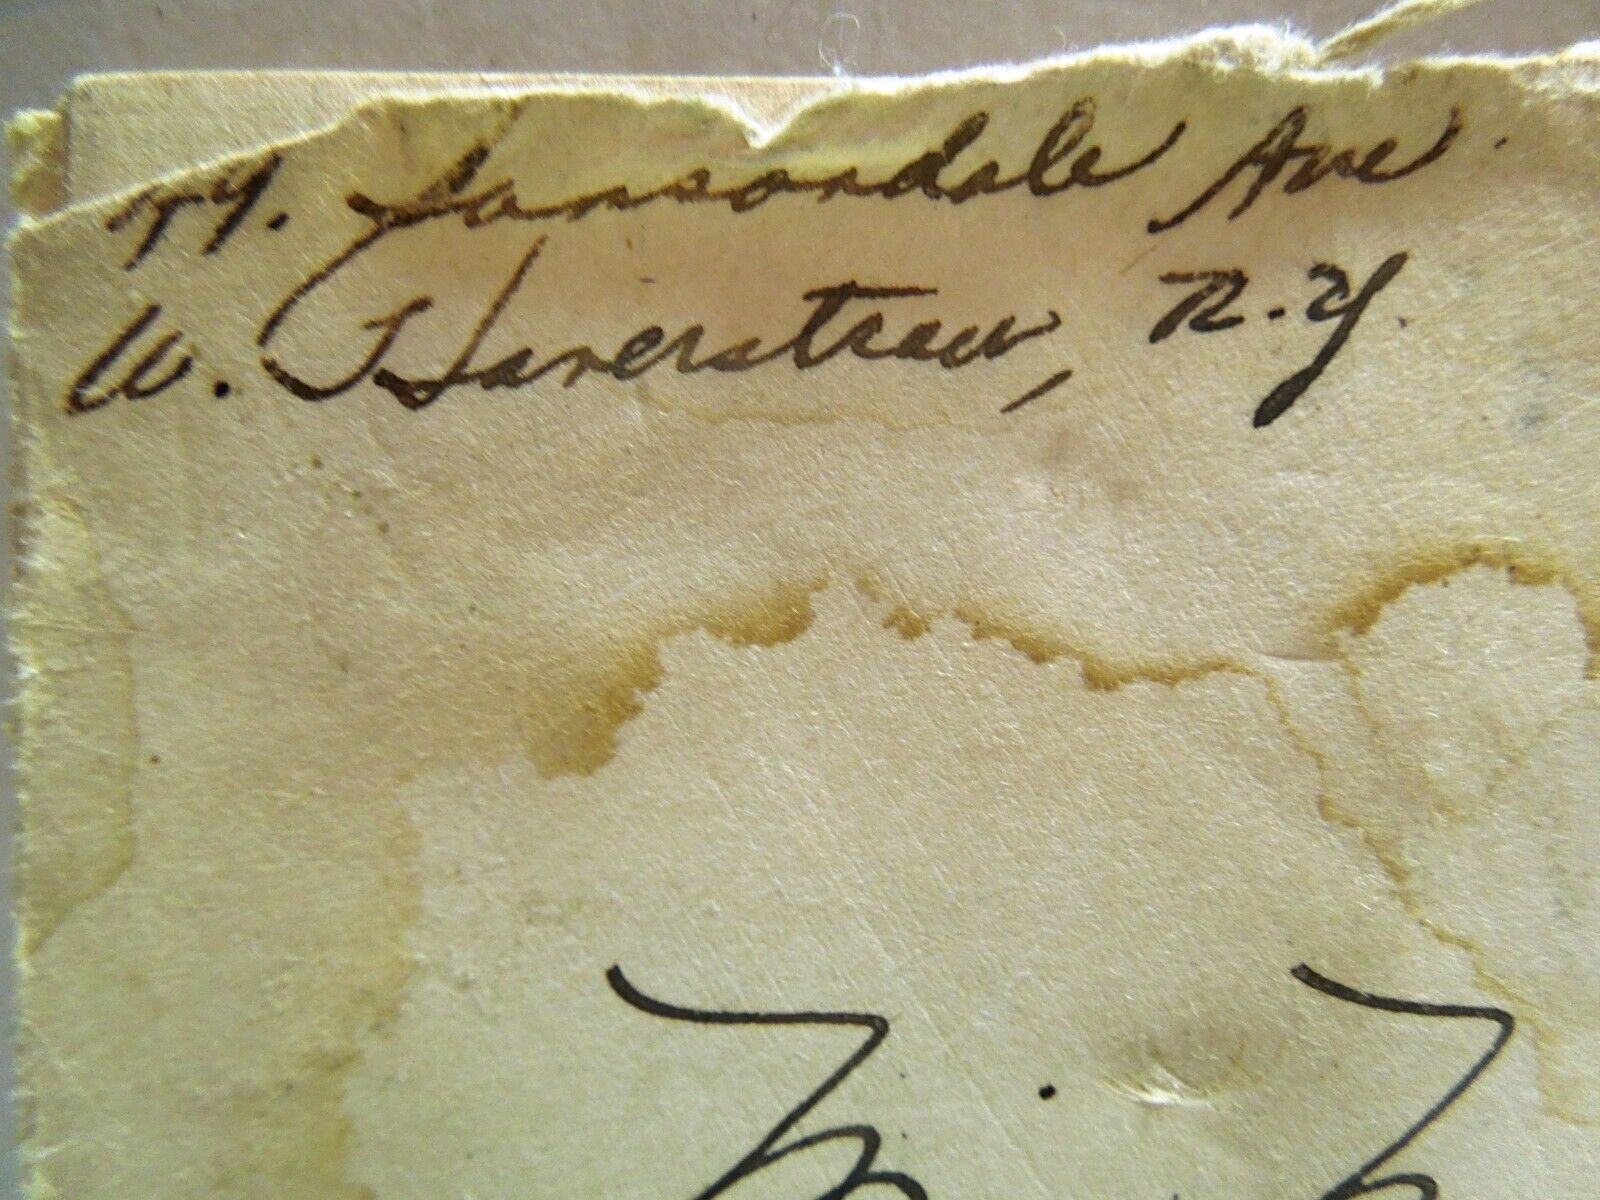 Samsondale Ave.
W. Haverstraw, N.Y.